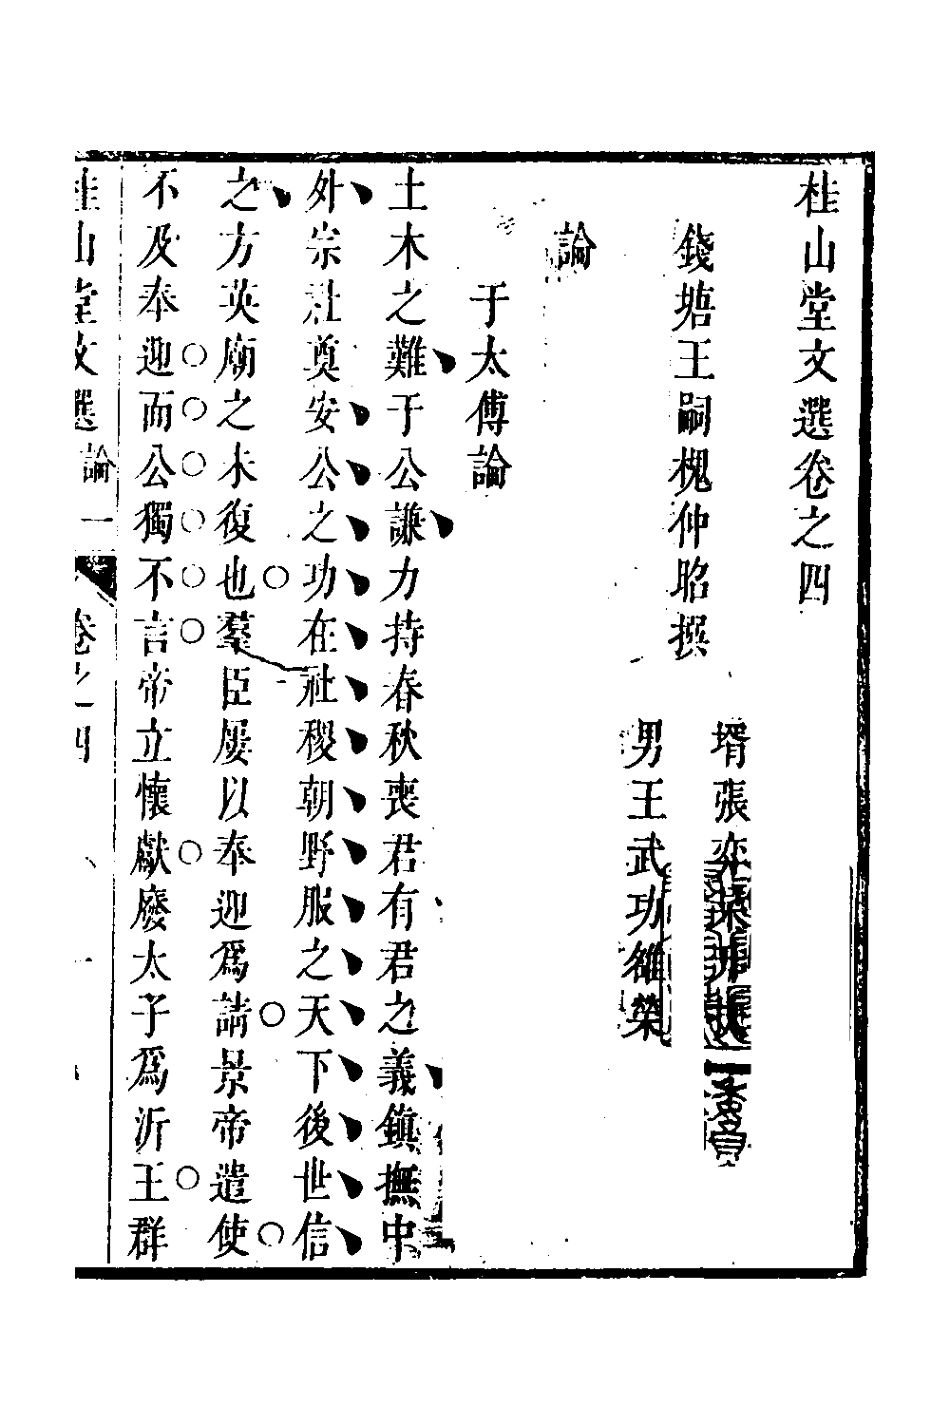 桂山堂文選卷之四
錢塘王嗣槐仲昭撰
壻張奕
男王武功維榮
論
于太傅論
土木之難于公謙力持春秋喪君有君之義鎮撫中
外宗社奠安公之功在社稷朝野服之天下後世信
之方英廟之未復也羣臣屢以奉迎爲請景帝遣使
不及奉迎而公獨不言帝立懷獻廢太子爲沂王群
桂山堂文選 論 一 卷之四